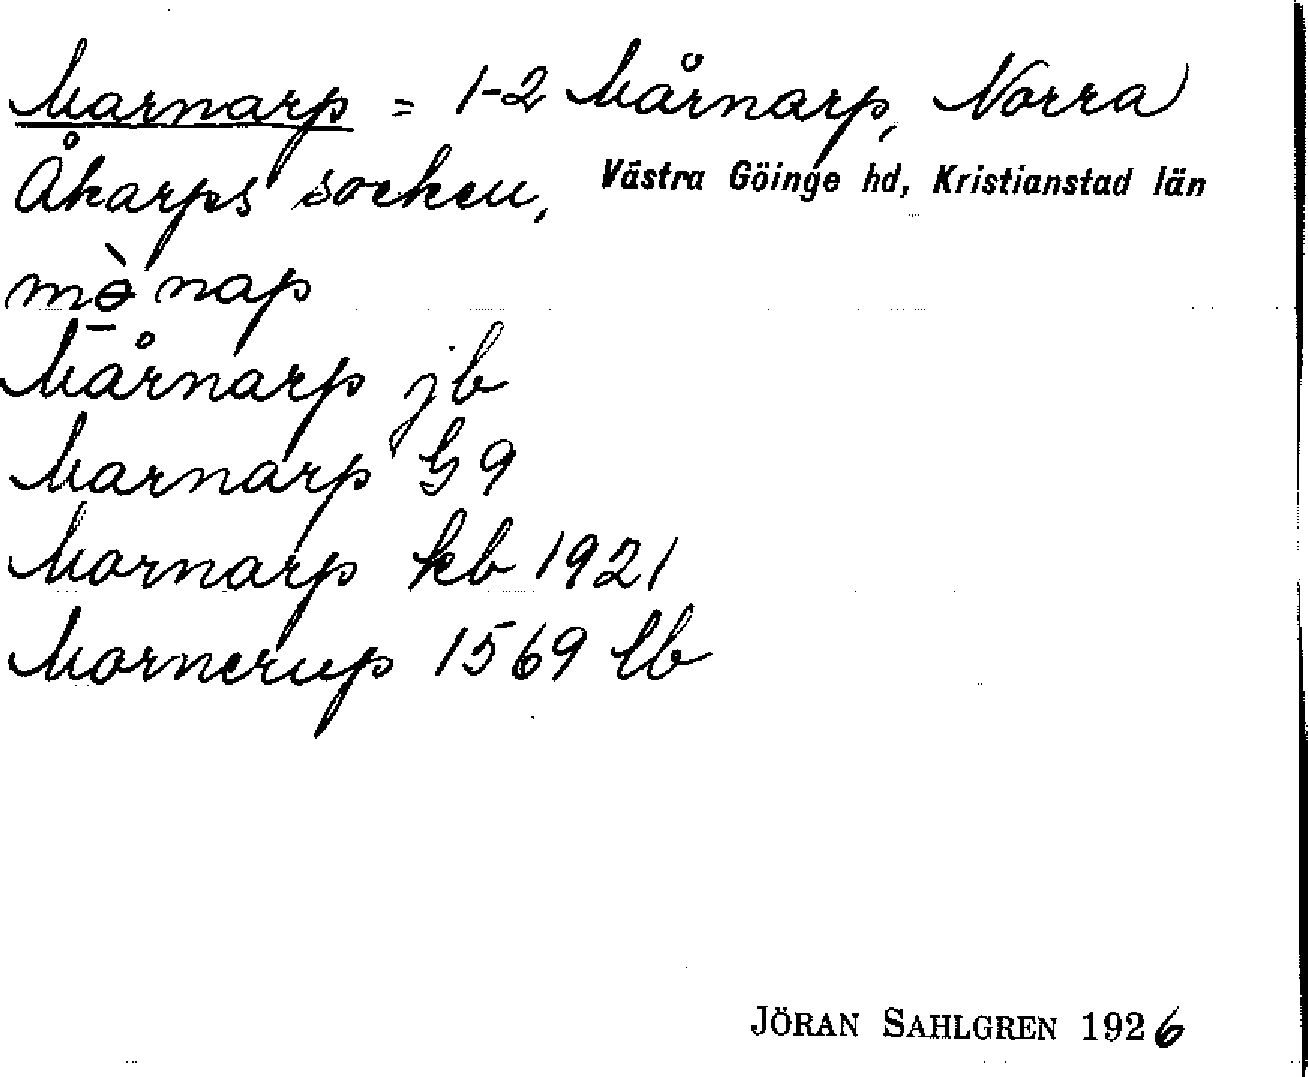 Marnarp = 1-2 Mårnarp, Norra
Åkarps socken, Västra Göinge hd, Kristianstad län
mɵ̀̄nap
Mårnarp jb
Marnarp G 9
Mornarp kb 1921
Mornerup 1569 lb
JÖRAN SAHLGREN 1926